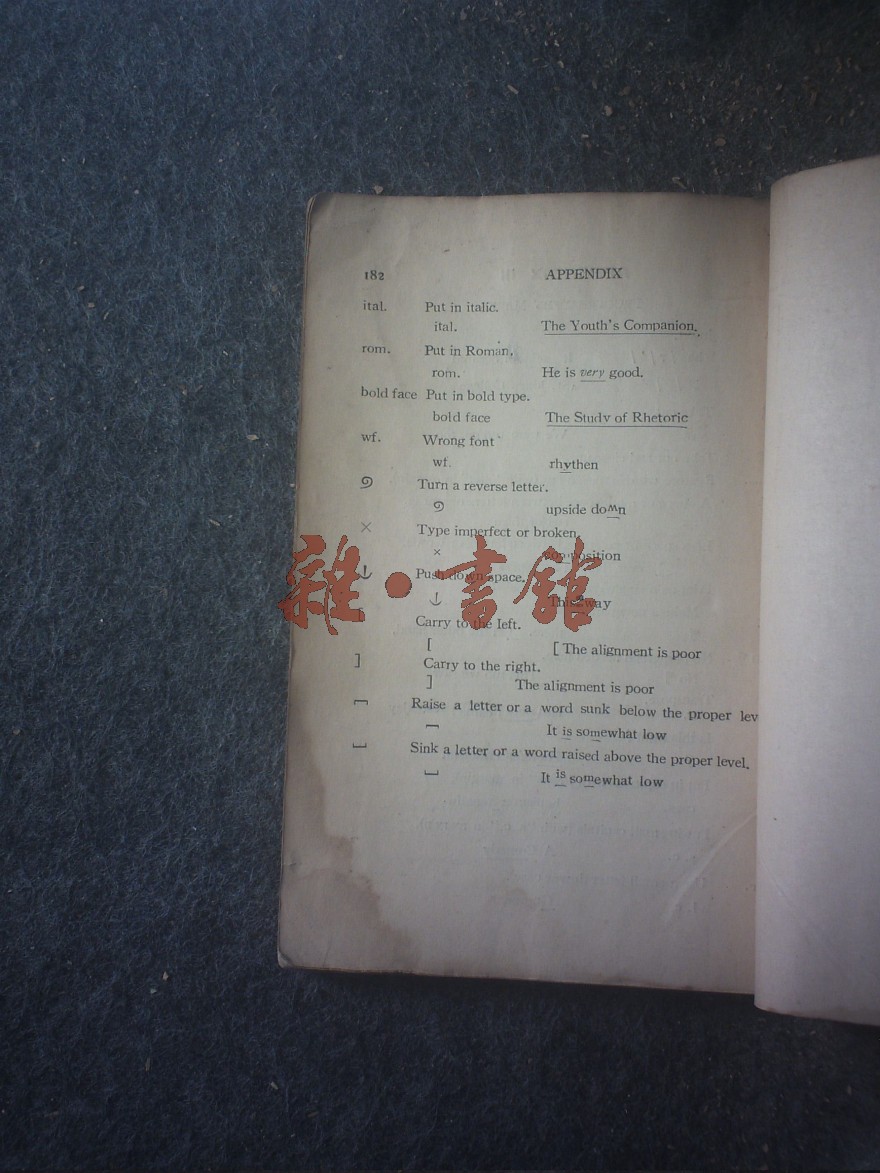 182 APPENDIX
ital. Put in italic.
ital. The Youth's Companion.
rom. Put in Roman.
rom. He is very good.
bold face Put in bold type.
bold face The Study of Rhetoric
wf. Wrong font
wf. rhythen
Turn a reverse letter.
upside down
× Type imperfect or broken
× position
Push down space.
This way
[ Carry to the left.
[ [ The alignment is poor
] Carry to the right.
] The alignment is poor
Raise a letter or a word sunk below the proper lev
It is somewhat low
Sink a letter or a word raised above the proper level.
It is somewhat low
雜·書館